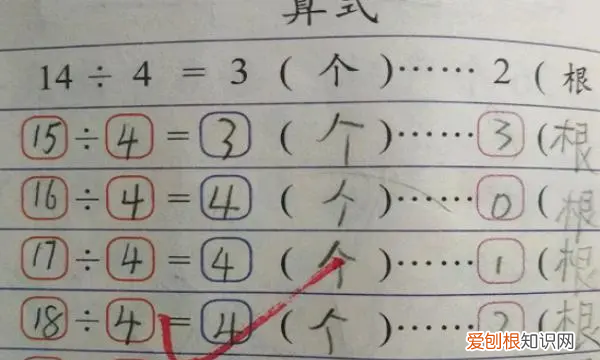 算式
14 ÷ 4 = 3 ( 个 )…… 2 ( 根
15 ÷ 4 = 3 ( 个 )…… 3 ( 根
16 ÷ 4 = 4 ( 个 )…… 0 ( 根
17 ÷ 4 = 4 ( 个 )…… 1 ( 根
18 ÷ 4 = 4 ( 个 )…… 2 ( 根
爱刨根知识网